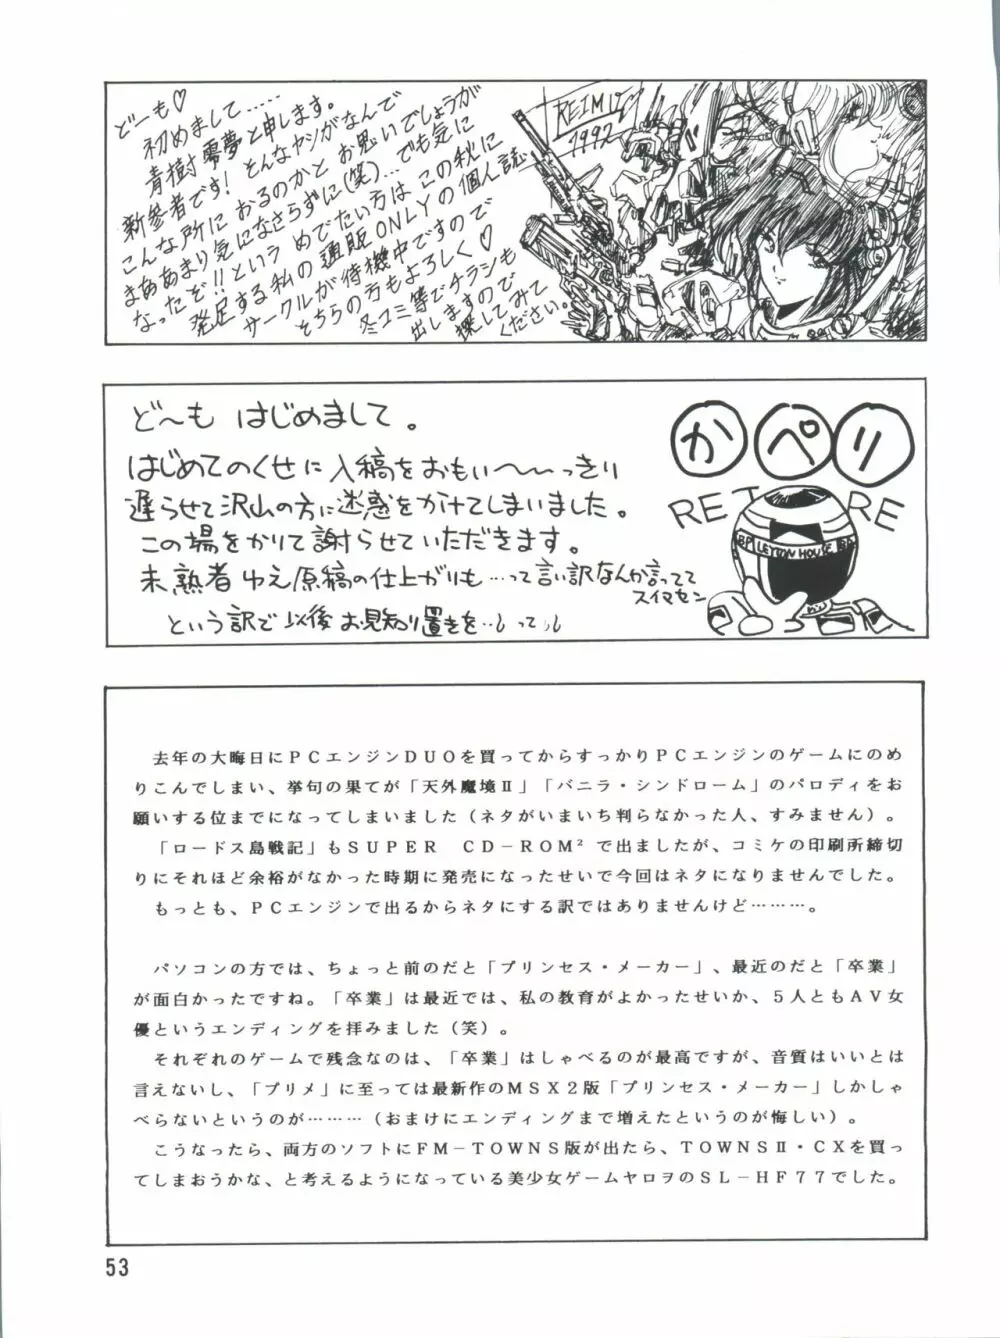 どーも♡
初めまして……
青樹零夢と申します。
新参者です! とんなヤツがなんで
こんな所におるのかとお思いでしょうが
まああまり気になさらずに(笑)…でも気に
なったぞ!!という めでたい方は この秋に
発足する私の通販ONLYの個人誌
サークルが待機中ですので
そちらの方もよろしく♡
冬コミ等でチラシも
出しますので
探してみて
ください。
REIMU
1992
ど〜も はじめまして。
はじめてのくせに入稿をおもい〜〜っきり
遅らせて沢山の方に迷惑をかけてしまいました。
この場をかりて謝らせていただきます。
未熟者ゆえ原稿の仕上がりも…って言い訳なんか言ってて
スイマセン
という訳で以後お見知り置きを
かぺり
RETIRE
BP LEYTON HOUSE
去年の大晦日にPCエンジンDUOを買ってからすっかりPCエンジンのゲームにのめ
りこんでしまい、挙句の果てが「天外魔境Ⅱ」「バニラ・シンドローム」のパロディをお
願いする位までになってしまいました(ネタがいまいち判らなかった人、すみません)。
「ロードス島戦記」もSUPER CD−ROM²で出ましたが、コミケの印刷所締切
りにそれほど余裕がなかった時期に発売になったせいで今回はネタになりませんでした。
もっとも、PCエンジンで出るからネタにする訳ではありませんけど………。
パソコンの方では、ちょっと前のだと「プリンセス・メーカー」、最近のだと「卒業」
が面白かったですね。「卒業」は最近では、私の教育がよかったせいか、5人ともAV女
優というエンディングを拝みました(笑)。
それぞれのゲームで残念なのは、「卒業」はしゃべるのが最高ですが、音質はいいとは
言えないし、「プリメ」に至っては最新作のMSX2版「プリンセス・メーカー」しかしゃ
べらないというのが………(おまけにエンディングまで増えたというのが悔しい)。
こうなったら、両方のソフトにFM−TOWNS版が出たら、TOWNSⅡ・CXを買っ
てしまおうかな、と考えるようになっている美少女ゲームヤロヲのSL−HF77でした。
53